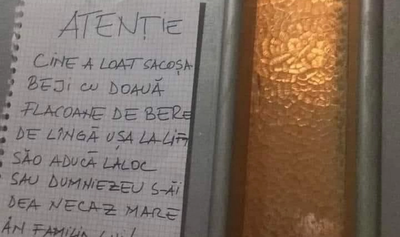 ATENȚIE
CINE A LOAT SACOȘA
BEJI CU DOAUĂ
FLACOANE DE BERE
DE LÎNGĂ UȘA LA LIFT
SĂO ADUCĂ LALOC
SAU DUMNIEZEU S-ĂI
DEA NECAZ MARE
ÂN FAMILIA